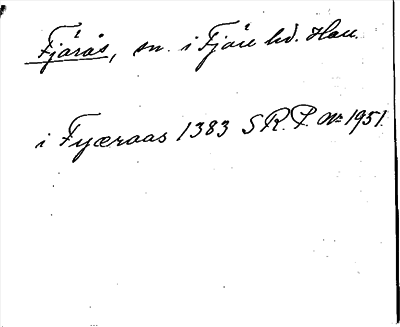 Fjärås, sn. i Fjäre hd. Hall.
i Fyæraas 1383 S.R.P. No 1951.